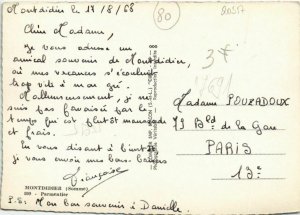 Montdidier le 17/8/68
80
Chère Madame,
Je vous adresse un
amical souvenir de Montdidier,
où mes vacances s'écoulent
trop vite à mon gré.
Malheureusement, je ne
suis pas favorisée par le
temps qui est plutôt maussade
et frais.
En vous disant à bientôt
je vous envoie mes bons baisers
Françoise
MONTDIDIER (Somme)
Parmentier
P.S: Mon bon souvenir à Danielle.
Madame POUZADOUX
79 Bld de la Gare
PARIS
13e